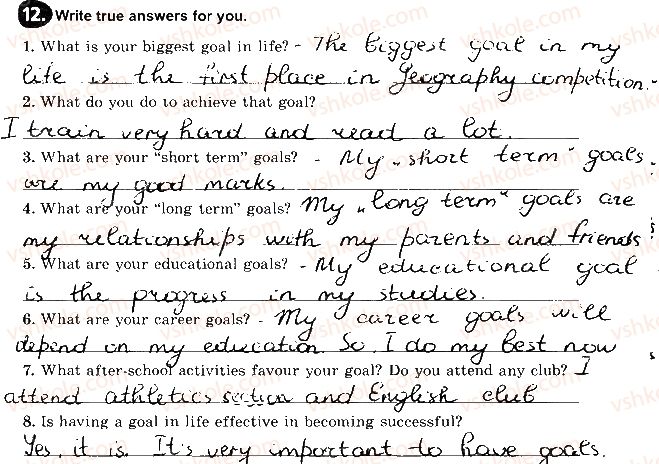 12. Write true answers for you.
1. What is your biggest goal in life? - The biggest goal in my
life is the first place in Geography competition.
2. What do you do to achieve that goal?
I train very hard and read a lot.
3. What are your "short term" goals? - My „short term" goals
are my good marks.
4. What are your "long term" goals? My „long term" goals are
my relationships with my parents and friends
5. What are your educational goals? - My educational goal
is the progress in my studies.
6. What are your career goals? - My career goals will
depend on my education. So, I do my best now
7. What after-school activities favour your goal? Do you attend any club? I
attend athletics section and English club
8. Is having a goal in life effective in becoming successful?
Yes, it is. It's very important to have goals.